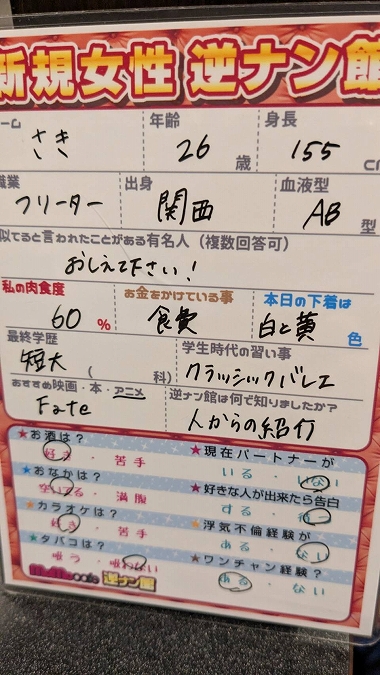 新規女性 逆ナン館
ーム 年齢 身長
さき 26 歳 155 cm
職業 出身 血液型
フリーター 関西 AB 型
似てると言われたことがある有名人(複数回答可)
おしえて下さい!
私の肉食度 お金をかけている事 本日の下着は
60 % 食費 白と黄 色
最終学歴 学生時代の習い事
短大( 科) クラッシックバレエ
おすすめ映画・本・アニメ 逆ナン館は何で知りましたか?
Fate 人からの紹介
★お酒は? ★現在パートナーが
好き・苦手 いる・いない
★おなかは? ★好きな人が出来たら告白
空いてる・満腹 する・待つ
★カラオケは? ★浮気不倫経験が
好き・苦手 ある・ない
★タバコは? ★ワンチャン経験?
吸う・吸わない ある・ない
cafe 逆ナン館